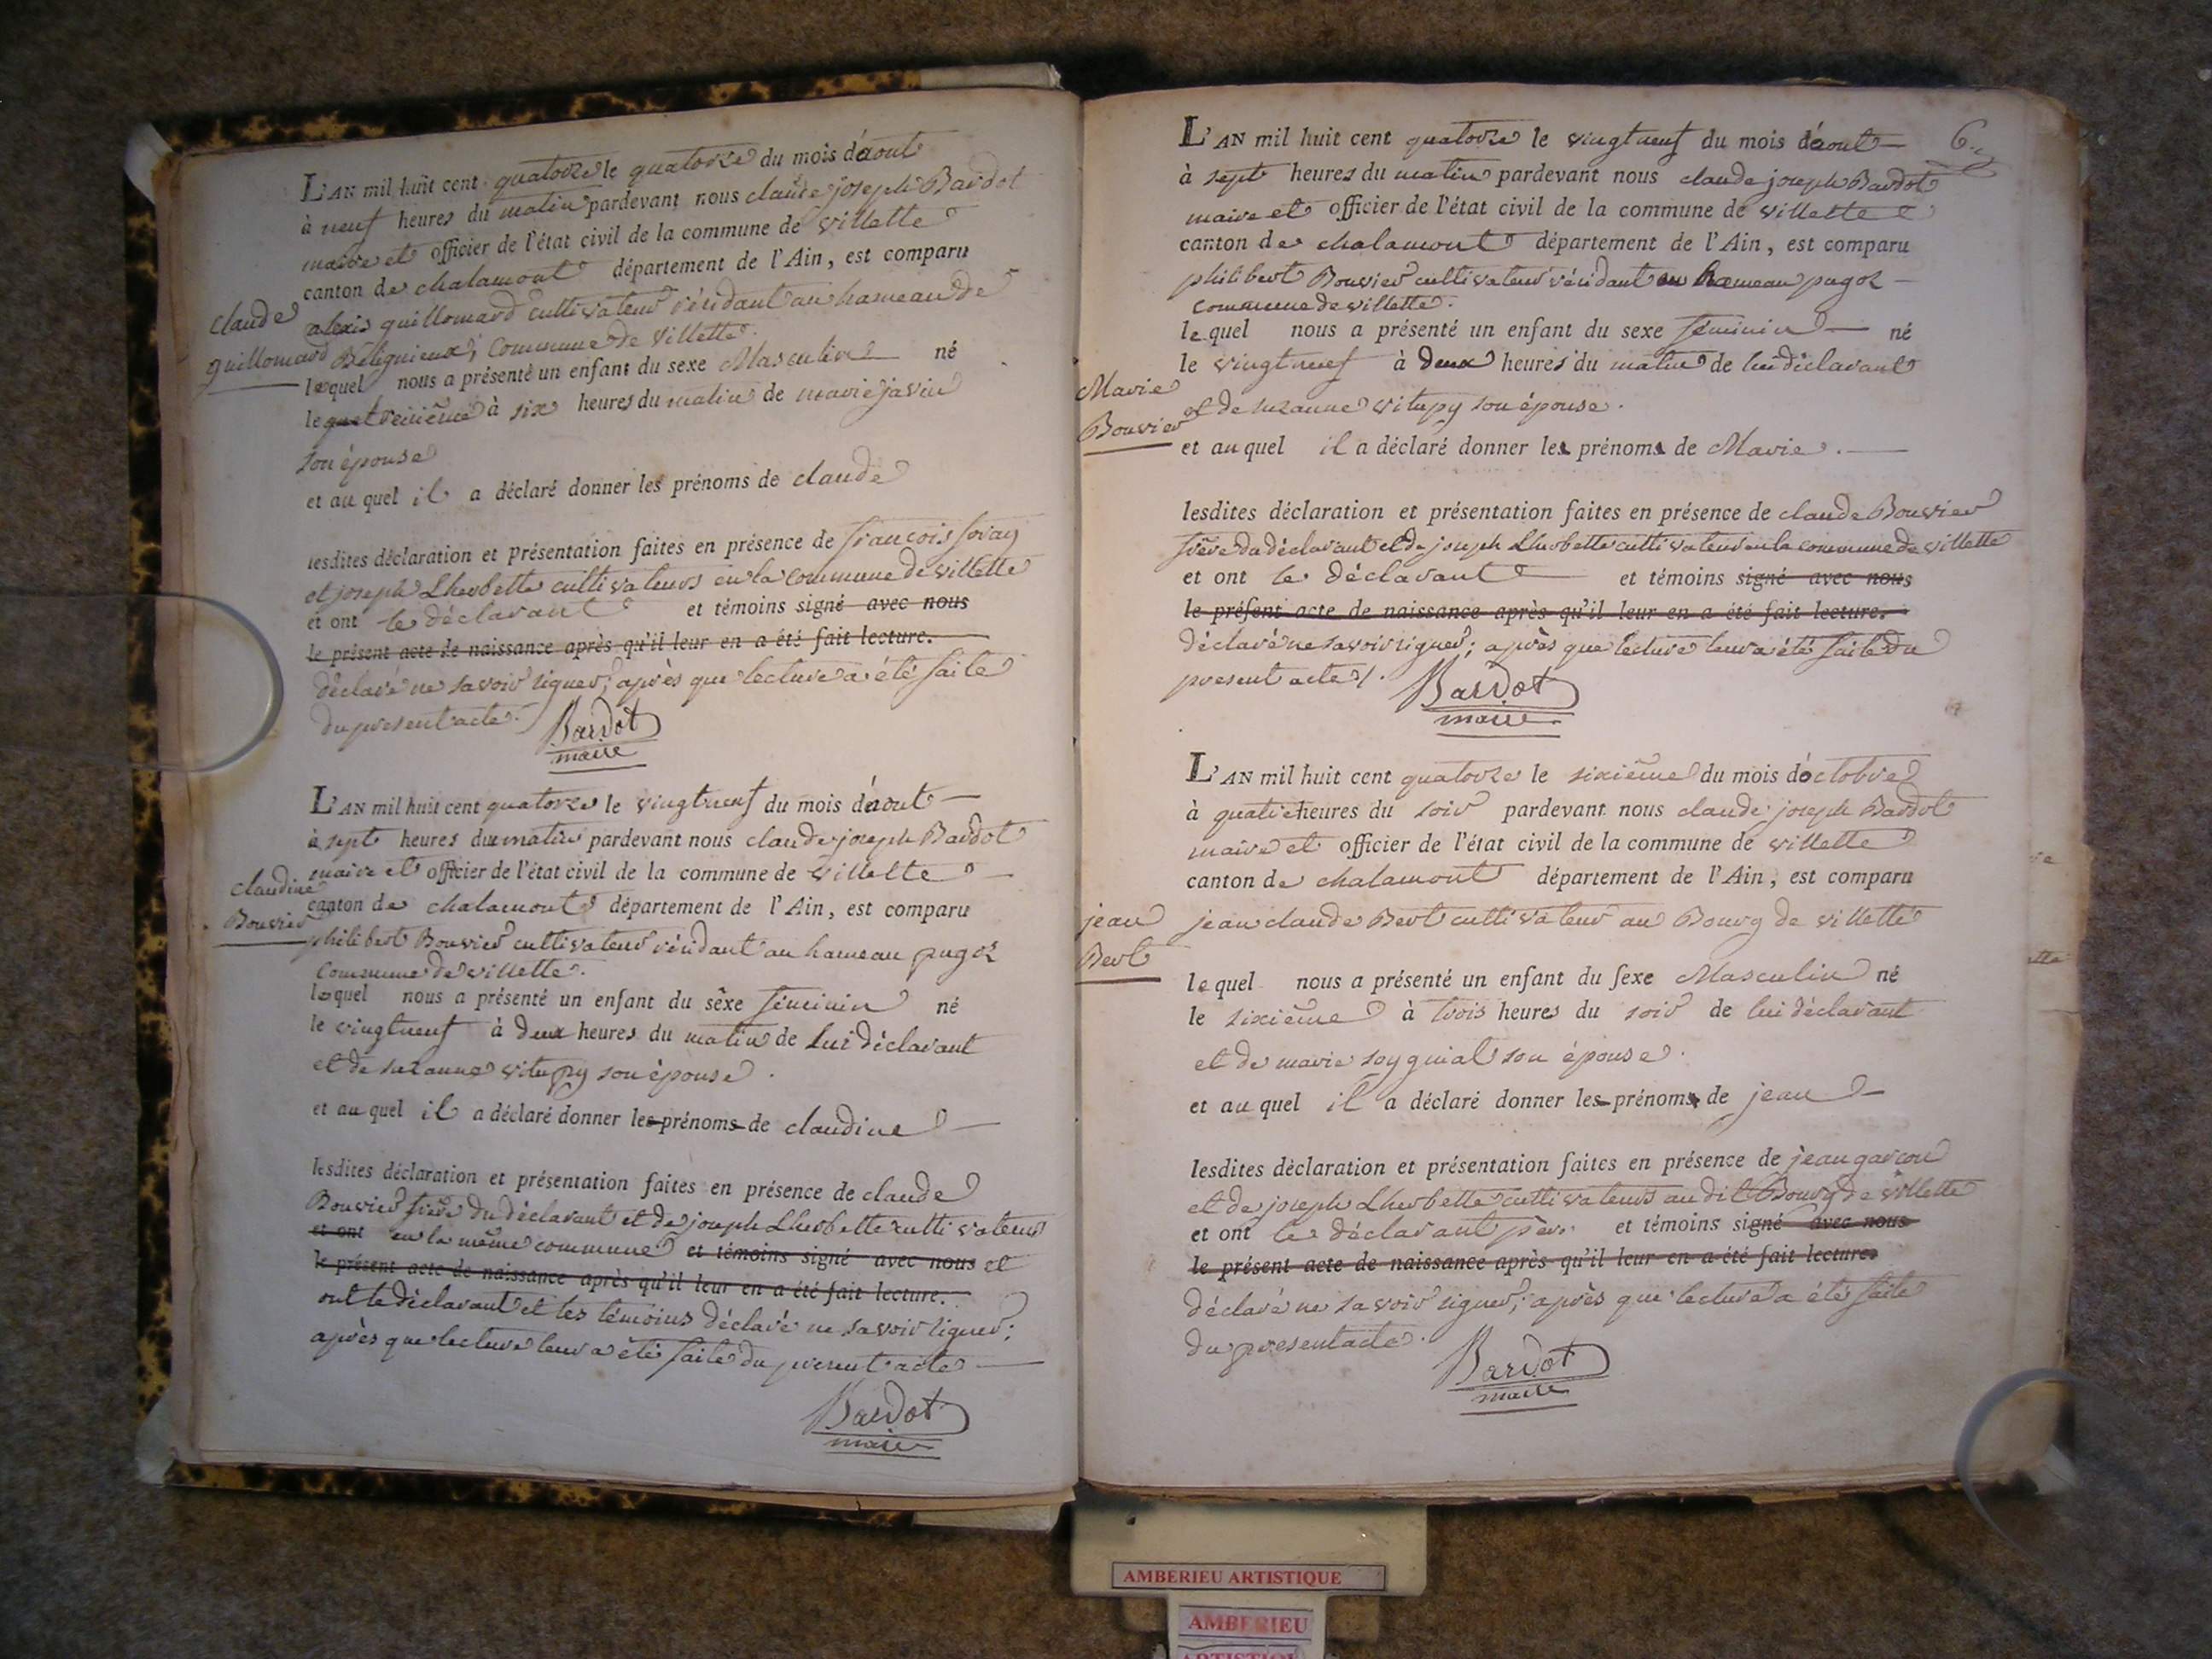 L'AN mil huit cent quatorze le quatorze du mois d'aout
à neuf heures du matin pardevant nous claude joseph Bardot
maire et officier de l'état civil de la commune de villette
canton de chalamont département de l'Ain, est comparu
alexis guillomard cultivateur résidant au hameau de
Bélignieux, commune de villette.
claude
guillomard
lequel nous a présenté un enfant du sexe Masculin né
le à six heures du matin de marie javin
son épouse
et au quel il a déclaré donner les prénoms de claude
lesdites déclaration et présentation faites en présence de françois foray
et joseph Lherbette cultivateurs en la commune de villette
et ont le déclarant et témoins signé avec nous
le présent acte de naissance après qu'il leur en a été fait lecture.
déclaré ne savoir signer; après que lecture a été faite
du present acte.
Bardot
maire
L'AN mil huit cent quatorze le vingt neuf du mois d'aout
à sept heures du matin pardevant nous claude joseph Bardot
maire et officier de l'état civil de la commune de villette
canton de chalamont département de l'Ain, est comparu
claudine
Bouvier
philibert Bouvier cultivateur résidant au hameau pugoz
commune de villette.
lequel nous a présenté un enfant du sexe féminin né
le vingt neuf à deux heures du matin de lui déclarant
et de suzanne vitupy son épouse.
et au quel il a déclaré donner les prénoms de claudine
lesdites déclaration et présentation faites en présence de claude
Bouvier frère du déclarant et de joseph Lherbette cultivateur
et ont en la même commune et témoins signé avec nous et
le présent acte de naissance après qu'il leur en a été fait lecture.
ont le déclarant et les témoins déclaré ne savoir signer;
après que lecture leur a été faite du present acte
Bardot
maire
6.
L'AN mil huit cent quatorze le vingt neuf du mois d'aout
à sept heures du matin pardevant nous claude joseph Bardot
maire et officier de l'état civil de la commune de villette
canton de chalamont département de l'Ain, est comparu
philibert Bouvier cultivateur résidant au hameau pugoz
commune de villette.
lequel nous a présenté un enfant du sexe féminin né
le vingt neuf à deux heures du matin de lui déclarant
Marie
Bouvier
et de suzanne vitupy son épouse.
et au quel il a déclaré donner les prénoms de Marie.
lesdites déclaration et présentation faites en présence de claude Bouvier
frère du déclarant et de joseph Lherbette cultivateur en la commune de villette
et ont le déclarant et témoins signé avec nous
le présent acte de naissance après qu'il leur en a été fait lecture.
déclaré ne savoir signer; après que lecture leur a été faite du
present acte.
Bardot
maire
L'AN mil huit cent quatorze le sixième du mois d'octobre
à quatre heures du soir pardevant nous claude joseph Bardot
maire et officier de l'état civil de la commune de villette
canton de chalamont département de l'Ain, est comparu
jean
Bert
jean claude Bert cultivateur au Bourg de villette
lequel nous a présenté un enfant du sexe Masculin né
le sixième à trois heures du soir de lui déclarant
et de marie soyguial son épouse.
et au quel il a déclaré donner les prénoms de jean
lesdites déclaration et présentation faites en présence de jean garcon
et de joseph Lherbette cultivateurs au dit Bourg de villette
et ont le déclarant père et témoins signé avec nous
le présent acte de naissance après qu'il leur en a été fait lecture.
déclaré ne savoir signer; après que lecture a été faite
du present acte.
Bardot
maire
AMBERIEU ARTISTIQUE
AMBERIEU
ARTISTIQUE